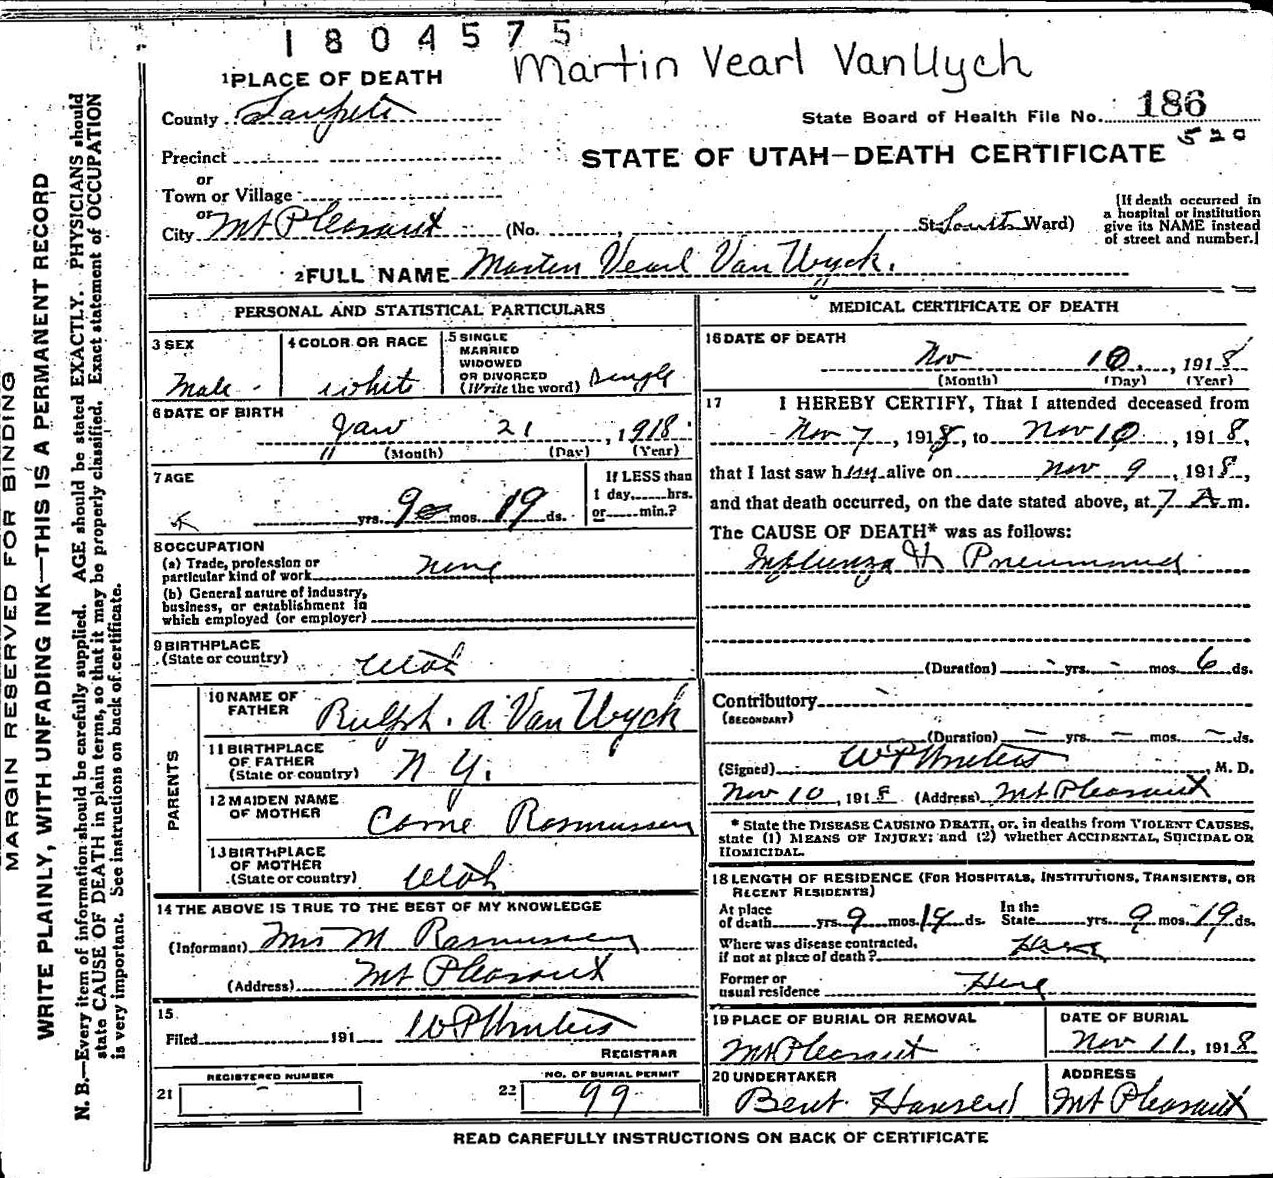 1804575
Martin Vearl VanUych
1 PLACE OF DEATH
County Sanpete
State Board of Health File No. 186
520
Precinct
STATE OF UTAH—DEATH CERTIFICATE
or
Town or Village
or
City Mt Pleasant (No. , St South Ward)
[If death occurred in a hospital or institution give its NAME instead of street and number.]
2 FULL NAME Martin Vearl Van Wyck.
PERSONAL AND STATISTICAL PARTICULARS
3 SEX
Male
4 COLOR OR RACE
white
5 SINGLE
MARRIED
WIDOWED
OR DIVORCED
(Write the word) Single
6 DATE OF BIRTH
Jan 21, 1918
(Month) (Day) (Year)
7 AGE
yrs. 9 mos. 19 ds.
If LESS than
1 day, hrs.
or min.?
8 OCCUPATION
(a) Trade, profession or
particular kind of work None
(b) General nature of industry,
business, or establishment in
which employed (or employer)
9 BIRTHPLACE
(State or country) Utah
PARENTS
10 NAME OF
FATHER Ralph. A. Van Wyck
11 BIRTHPLACE
OF FATHER
(State or country) N Y.
12 MAIDEN NAME
OF MOTHER Rasmussen
13 BIRTHPLACE
OF MOTHER
(State or country) Utah
14 THE ABOVE IS TRUE TO THE BEST OF MY KNOWLEDGE
(Informant) Mrs M Rasmussen
(Address) Mt Pleasant
15.
Filed 191 W P Winters
REGISTRAR
REGISTERED NUMBER
21 -
NO. OF BURIAL PERMIT
22 99
MEDICAL CERTIFICATE OF DEATH
16 DATE OF DEATH
Nov 10, 1918
(Month) (Day) (Year)
17 I HEREBY CERTIFY, That I attended deceased from
Nov 7, 1918, to Nov 10, 1918,
that I last saw him alive on Nov 9, 1918,
and that death occurred, on the date stated above, at 7 A m.
The CAUSE OF DEATH* was as follows:
Influenza Pneumonia
(Duration) - yrs. - mos. 6 ds.
Contributory
(SECONDARY)
(Duration) - yrs. - mos. - ds.
(Signed) W P Winters, M. D.
Nov 10, 1918 (Address) Mt Pleasant
* State the DISEASE CAUSING DEATH, or, in deaths from VIOLENT CAUSES,
state (1) MEANS OF INJURY; and (2) whether ACCIDENTAL, SUICIDAL OR
HOMICIDAL.
18 LENGTH OF RESIDENCE (FOR HOSPITALS, INSTITUTIONS, TRANSIENTS, OR
RECENT RESIDENTS)
At place
of death yrs. 9 mos. 19 ds. In the State yrs. 9 mos. 19 ds.
Where was disease contracted,
if not at place of death? Here
Former or
usual residence Here
19 PLACE OF BURIAL OR REMOVAL
Mt Pleasant
DATE OF BURIAL
Nov 11, 1918
20 UNDERTAKER
Bent. Hansen
ADDRESS
Mt Pleasant
READ CAREFULLY INSTRUCTIONS ON BACK OF CERTIFICATE
MARGIN RESERVED FOR BINDING
WRITE PLAINLY, WITH UNFADING INK—THIS IS A PERMANENT RECORD
N. B.—Every item of information should be carefully supplied. AGE should be stated EXACTLY. PHYSICIANS should
state CAUSE OF DEATH in plain terms, so that it may be properly classified. Exact statement of OCCUPATION
is very important. See instructions on back of certificate.